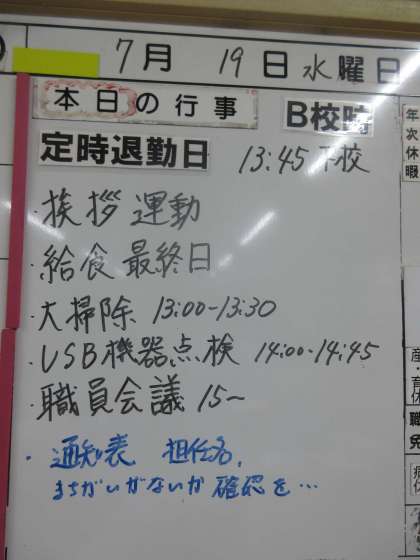 7月 19日 水曜日
本日の行事
B校時
定時退勤日 13:45 下校
・挨拶運動
・給食 最終日
・大掃除 13:00-13:30
・USB機器点検 14:00-14:45
・職員会議 15~
・通知表 担任名、
まちがいがないか確認を…
年次休暇
産・育休
職
免
病休